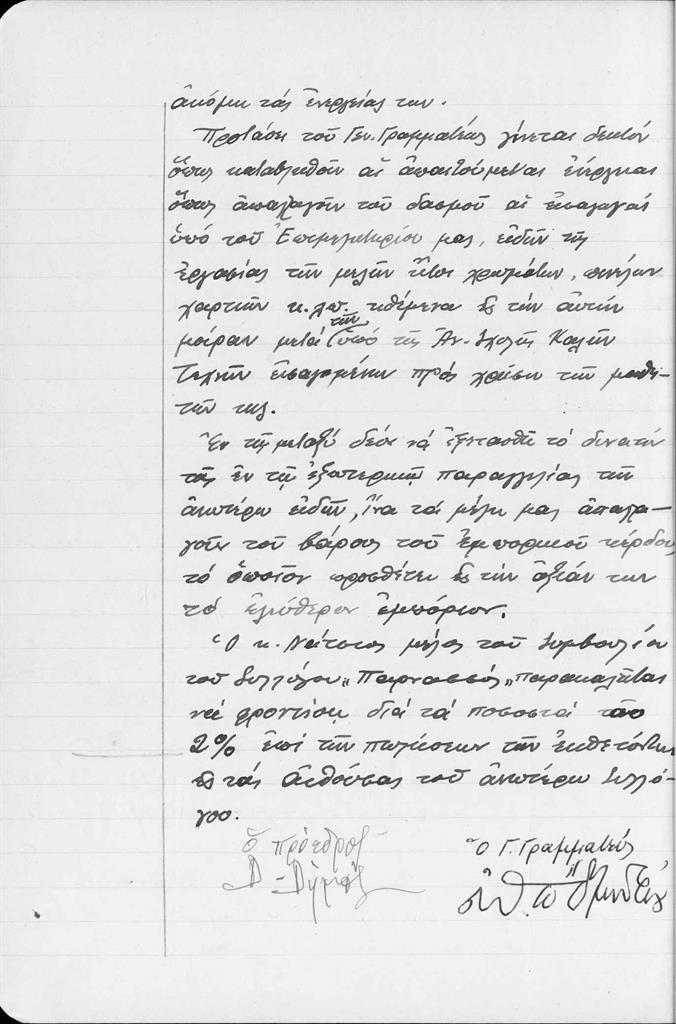 ἀκόμη τάς ἐνεργείας των.
Προτάσει τοῦ Γεν. Γραμματέως γίνεται δεκτόν
ὅπως καταβληθοῦν αἱ ἀπαιτούμεναι ἐνέργειαι
ὅπως ἀπαλλαγοῦν τοῦ δασμοῦ αἱ εἰσαγωγαί
ὑπό τοῦ Ἐπιμελητηρίου μας, εἰδῶν τῆς
ἐργασίας τῶν μελῶν ἤτοι χρωμάτων, πινέλων
χαρτιῶν κ.λπ. τιθέμενα εἰς τήν αὐτήν
μοῖραν μετά τῶν ὑπό τῆς Αν. Σχολῆς Καλῶν
Τεχνῶν εἰσαγομένων πρός χρῆσιν τῶν μαθη-
τῶν της.
Ἐν τῷ μεταξύ δέον νά ἐξετασθῆ τό δυνατόν
τῆς ἐν τῷ ἐξωτερικῷ παραγγελίας τῶν
ἀνωτέρω εἰδῶν, ἵνα τά μέλη μας ἀπαλλα-
γοῦν τοῦ βάρους τοῦ ἐμπορικοῦ κέρδους
τό ὁποῖον προσθέτει εἰς τήν ἀξίαν των
τό ἐλεύθερον ἐμπόριον.
Ὁ κ. μέλος τοῦ Συμβουλίου
τοῦ Συλλόγου "Παρνασσός" παρακαλεῖται
νά φροντίσῃ διά τά ποσοστά τοῦ
2% ἐπί τῶν πωλήσεων τῶν ἐκθετόντων
εἰς τάς αἰθούσας τοῦ ἀνωτέρω Συλλό-
γου.
Ὁ Πρόεδρος
Ὁ Γ. Γραμματεύς